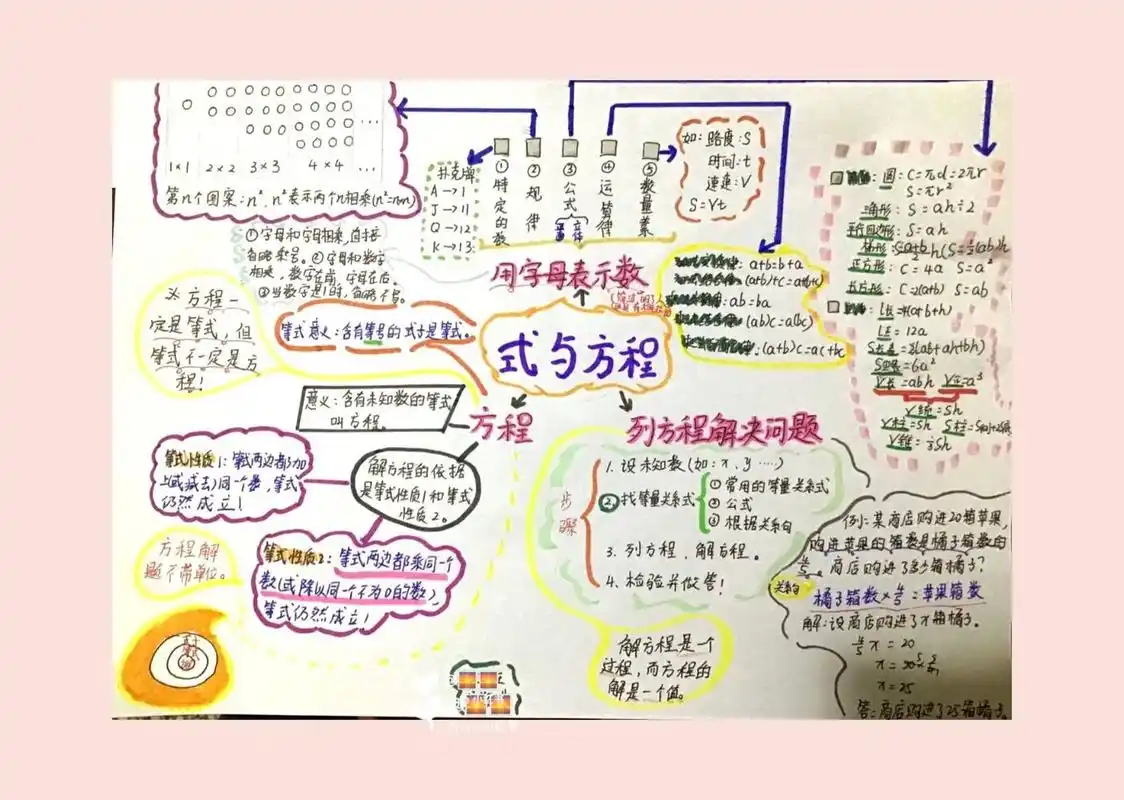 1×1 2×2 3×3 4×4 …
第n个图案:n²,n²表示两个n相乘(n²=n×n)
①字母和字母相乘,直接
省略乘号。②字母和数字
相乘,数字在前,字母在后。
扑克牌
A→1
J→11
Q→12
K→13
①特定的数
②规律
③公式
④运算律
⑤数量
如:路度:S
时间:t
速速:V
S=Vt
用字母表示数
a+b=b+a
ab=ba
(ab)c=a(bc)
:(a+b)c=ac+bc
圆:C=πd=2πr
S=πr²
三角形:S=ah÷2
平行四边形:S=ah
梯形:
正方形:C=4a S=a²
长方形:C=2(a+b) S=ab
L长=4(a+b+h)
L正=12a
S长表=2(ab+ah+bh)
S正表=6a²
V长=abh V正=a³
V柱=Sh
V锥=⅓Sh
方程一
定是等式,但
等式不一定是方
程!
等式意义:含有等号的式子是等式。
式与方程
意义:含有未知数的等式
叫方程。
方程
等式性质1:等式两边都加
上(或减去)同一个数,等式
仍然成立!
解方程的依据
是等式性质1和等式
性质2。
方程解
题不带单位。
等式性质2:等式两边都乘同一个
数(或除以同一个不为0的数),
等式仍然成立!
列方程解决问题
步骤
1.设未知数(如:x、y……)
②找等量关系式
①常用的等量关系式
②公式
③根据关系句
3.列方程、解方程。
4.检验并做答!
解方程是一个
过程,而方程的
解是一个值。
例:某商店购进20箱苹果,
购进苹果的箱数是橘子箱数的
⅘。商店购进了多少箱橘子?
关系句
橘子箱数×⅘=苹果箱数
解:设商店购进了x箱橘子。
⅘x=20
x=25
答:商店购进了25箱橘子。